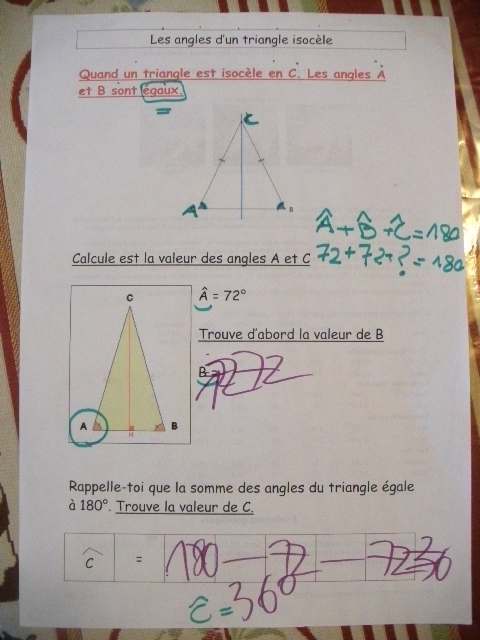 Les angles d'un triangle isocèle
Quand un triangle est isocèle en C. Les angles A
et B sont égaux.
C
A B
Â + B̂ + Ĉ = 180
72 + 72 + ? = 180
Calcule est la valeur des angles A et C
C
A B
H
Â = 72°
Trouve d'abord la valeur de B
B = 72
Rappelle-toi que la somme des angles du triangle égale
à 180°. Trouve la valeur de C.
Ĉ = 180 — 72 — 72 36
Ĉ = 36°